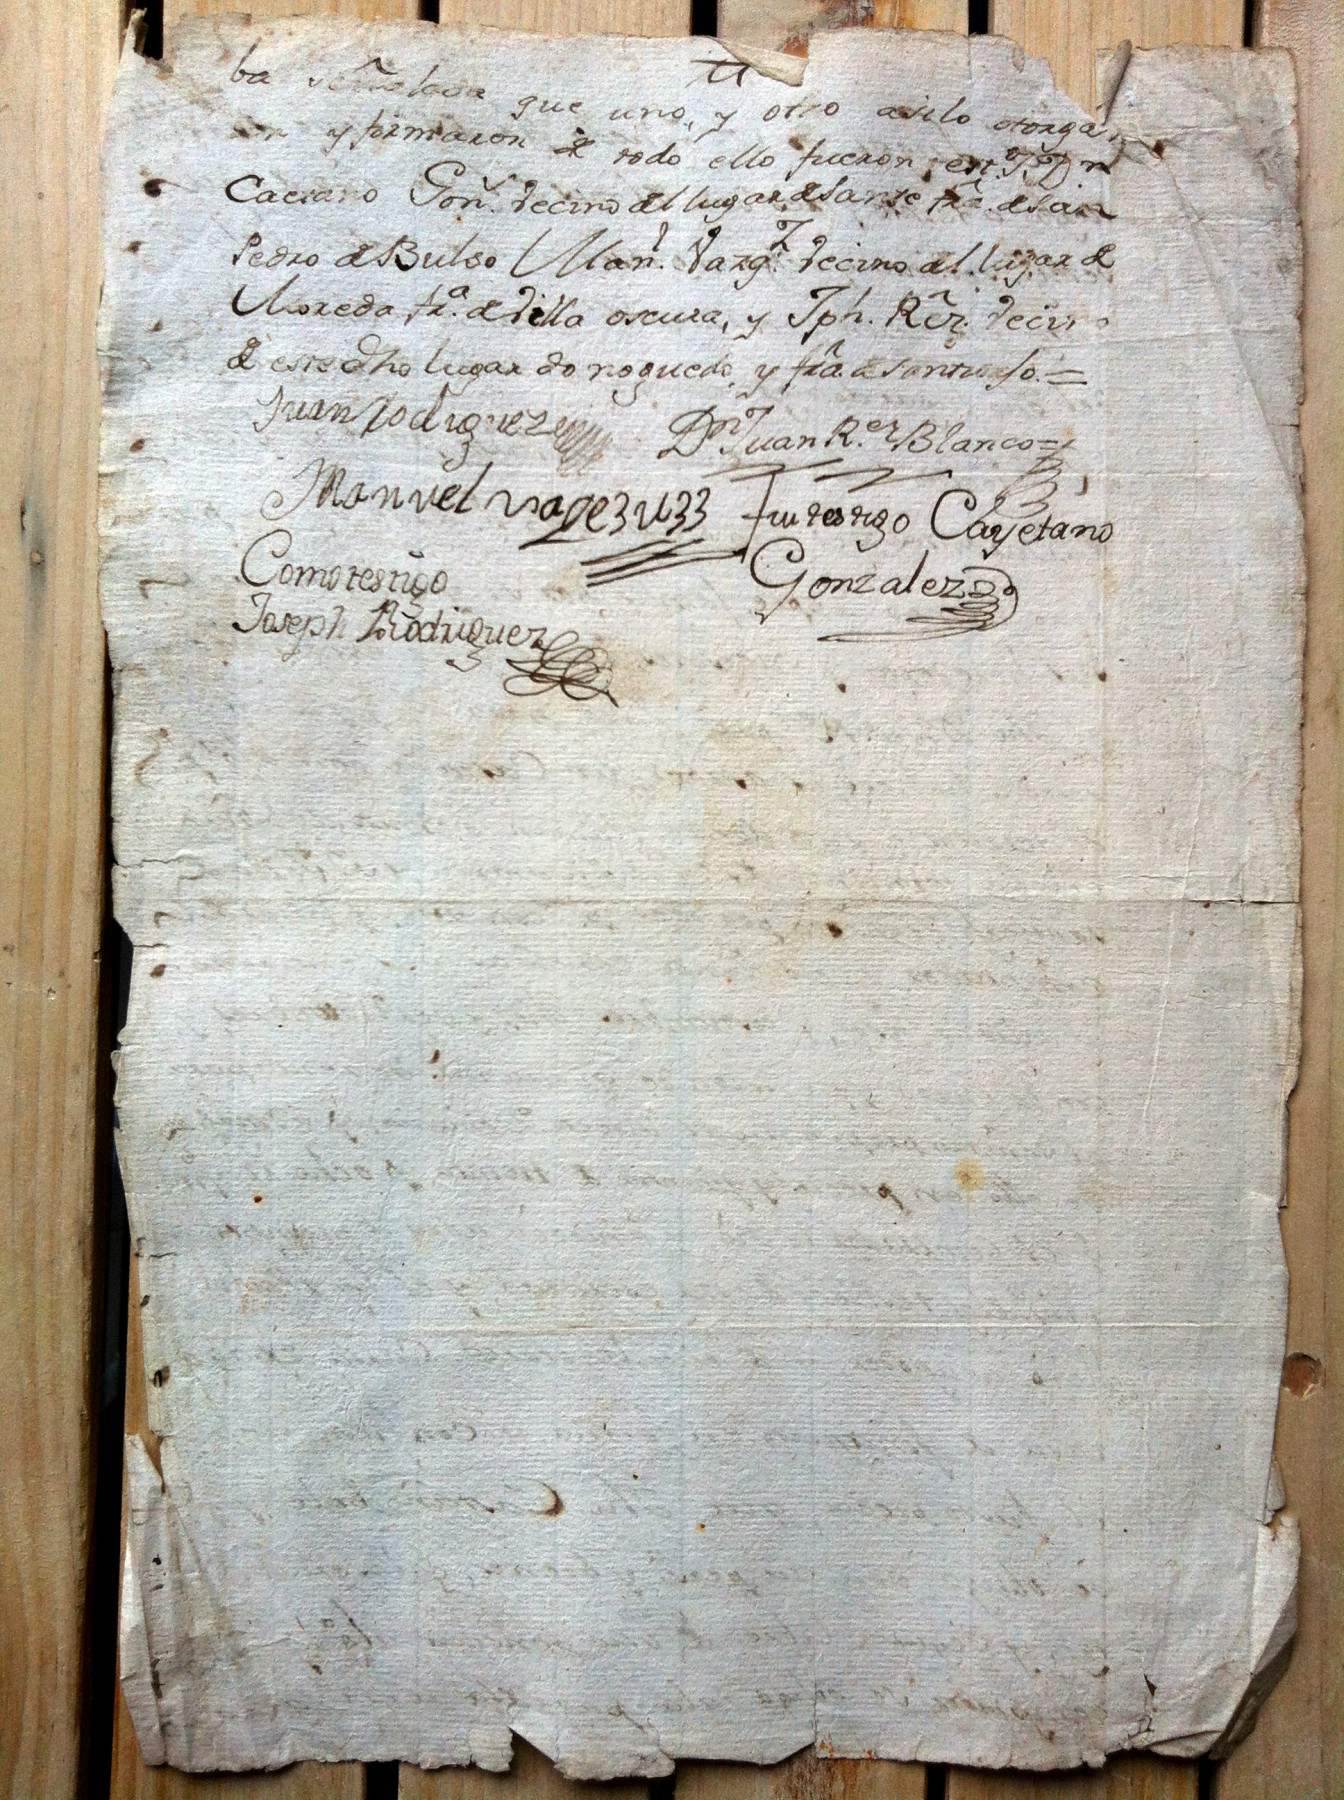 ba señalada que uno, y otro asilo otorga
on y firmaron de todo ello fueron tt.os Dn
Caetano Gonz. Vecino del lugar de Sante fra. de San
Pedro de Bulso Man.l Vazq.z Vecino del lugar de
Moreda fr.a de Villa oscura, y Jph. Rez. Vecino
de este dho lugar do noguedo, y fra. de
Juan Rodriguez
Dn Juan R.ez Blanco
Manuel vazez
Fui testigo Cayetano
Gonzalez
Como testigo
Joseph Rodriguez